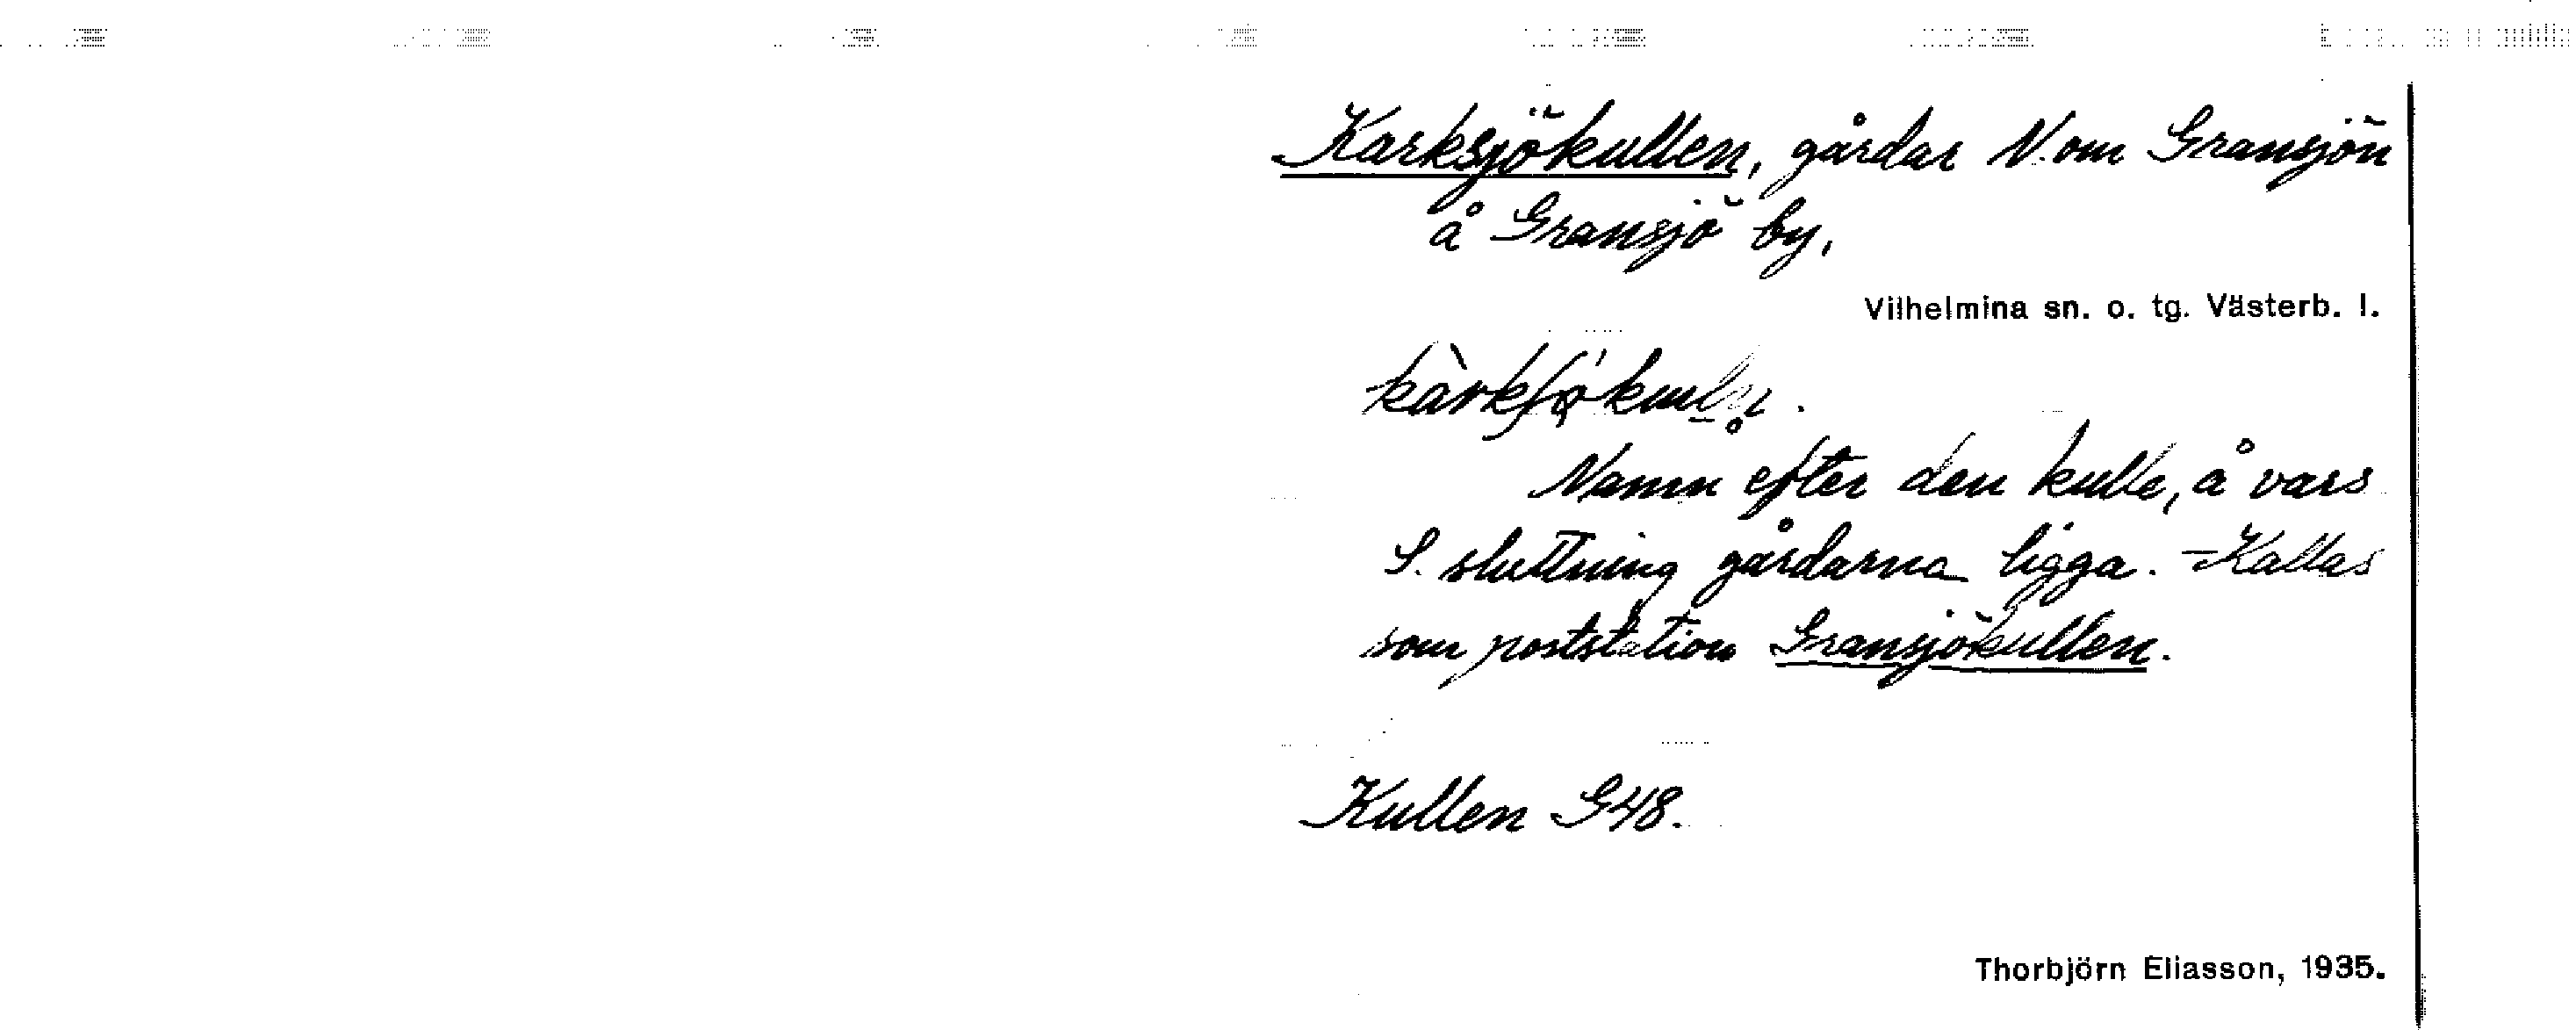 Karksjökullen, gårdar N. om Gransjön
å Gransjö by.
Vilhelmina sn. o. tg. Västerb. l.
Namn efter den kulle, å vars
S. sluttning gårdarna ligga. – Kallas
som poststation Gransjökullen.
Kullen G48.
Thorbjörn Eliasson, 1935.